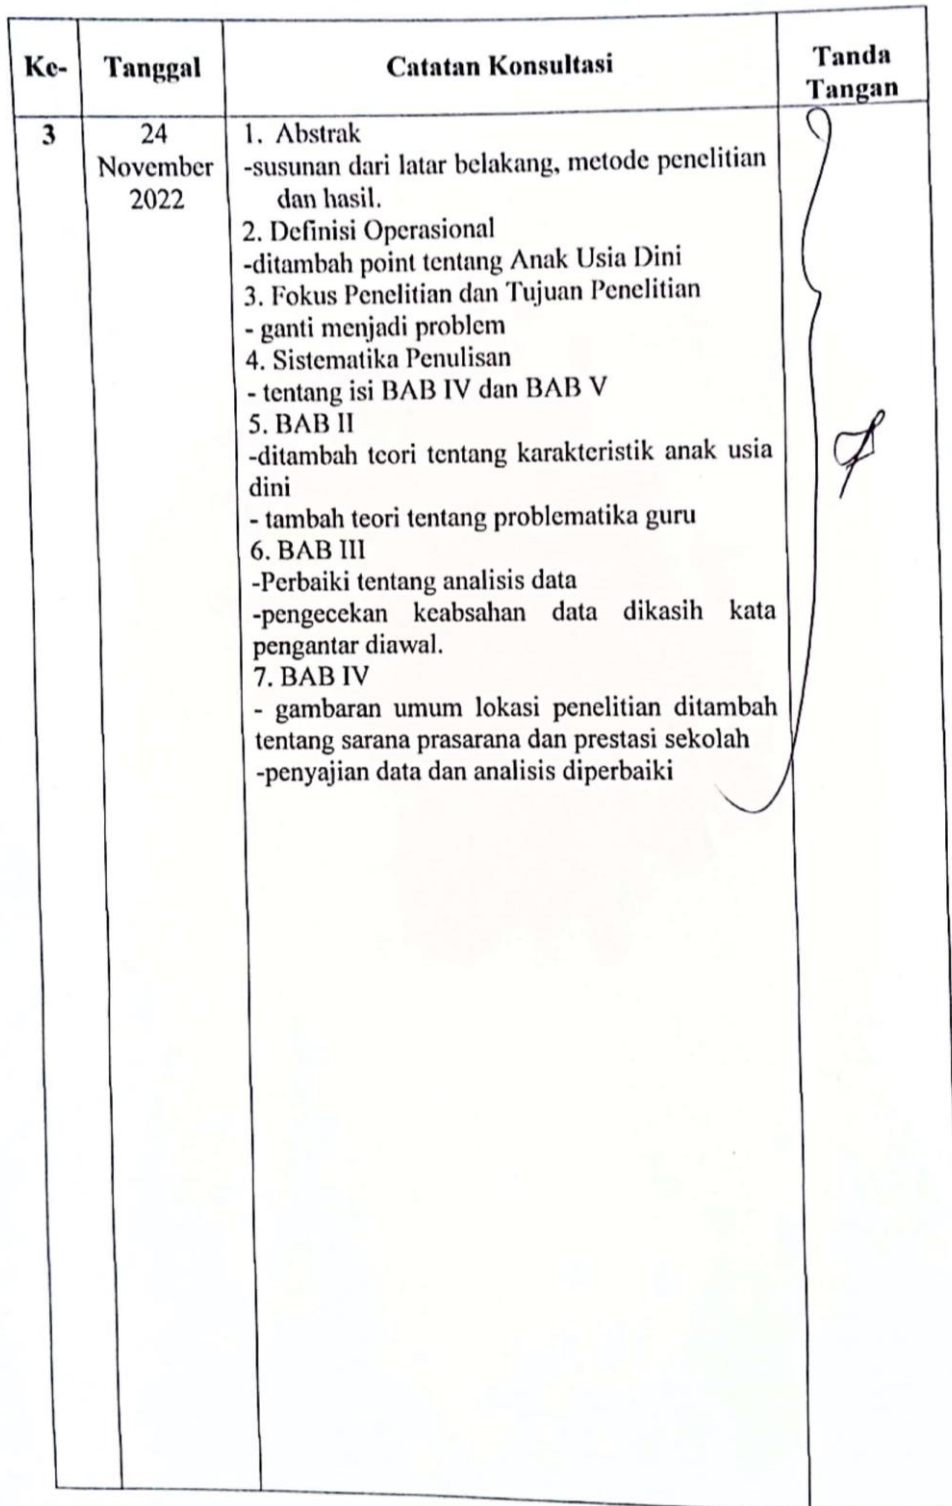 Ke- Tanggal Catatan Konsultasi Tanda Tangan
3 24 November 2022
1. Abstrak
-susunan dari latar belakang, metode penelitian
dan hasil.
2. Definisi Operasional
-ditambah point tentang Anak Usia Dini
3. Fokus Penelitian dan Tujuan Penelitian
- ganti menjadi problem
4. Sistematika Penulisan
- tentang isi BAB IV dan BAB V
5. BAB II
-ditambah teori tentang karakteristik anak usia
dini
- tambah teori tentang problematika guru
6. BAB III
-Perbaiki tentang analisis data
-pengecekan keabsahan data dikasih kata
pengantar diawal.
7. BAB IV
- gambaran umum lokasi penelitian ditambah
tentang sarana prasarana dan prestasi sekolah
-penyajian data dan analisis diperbaiki